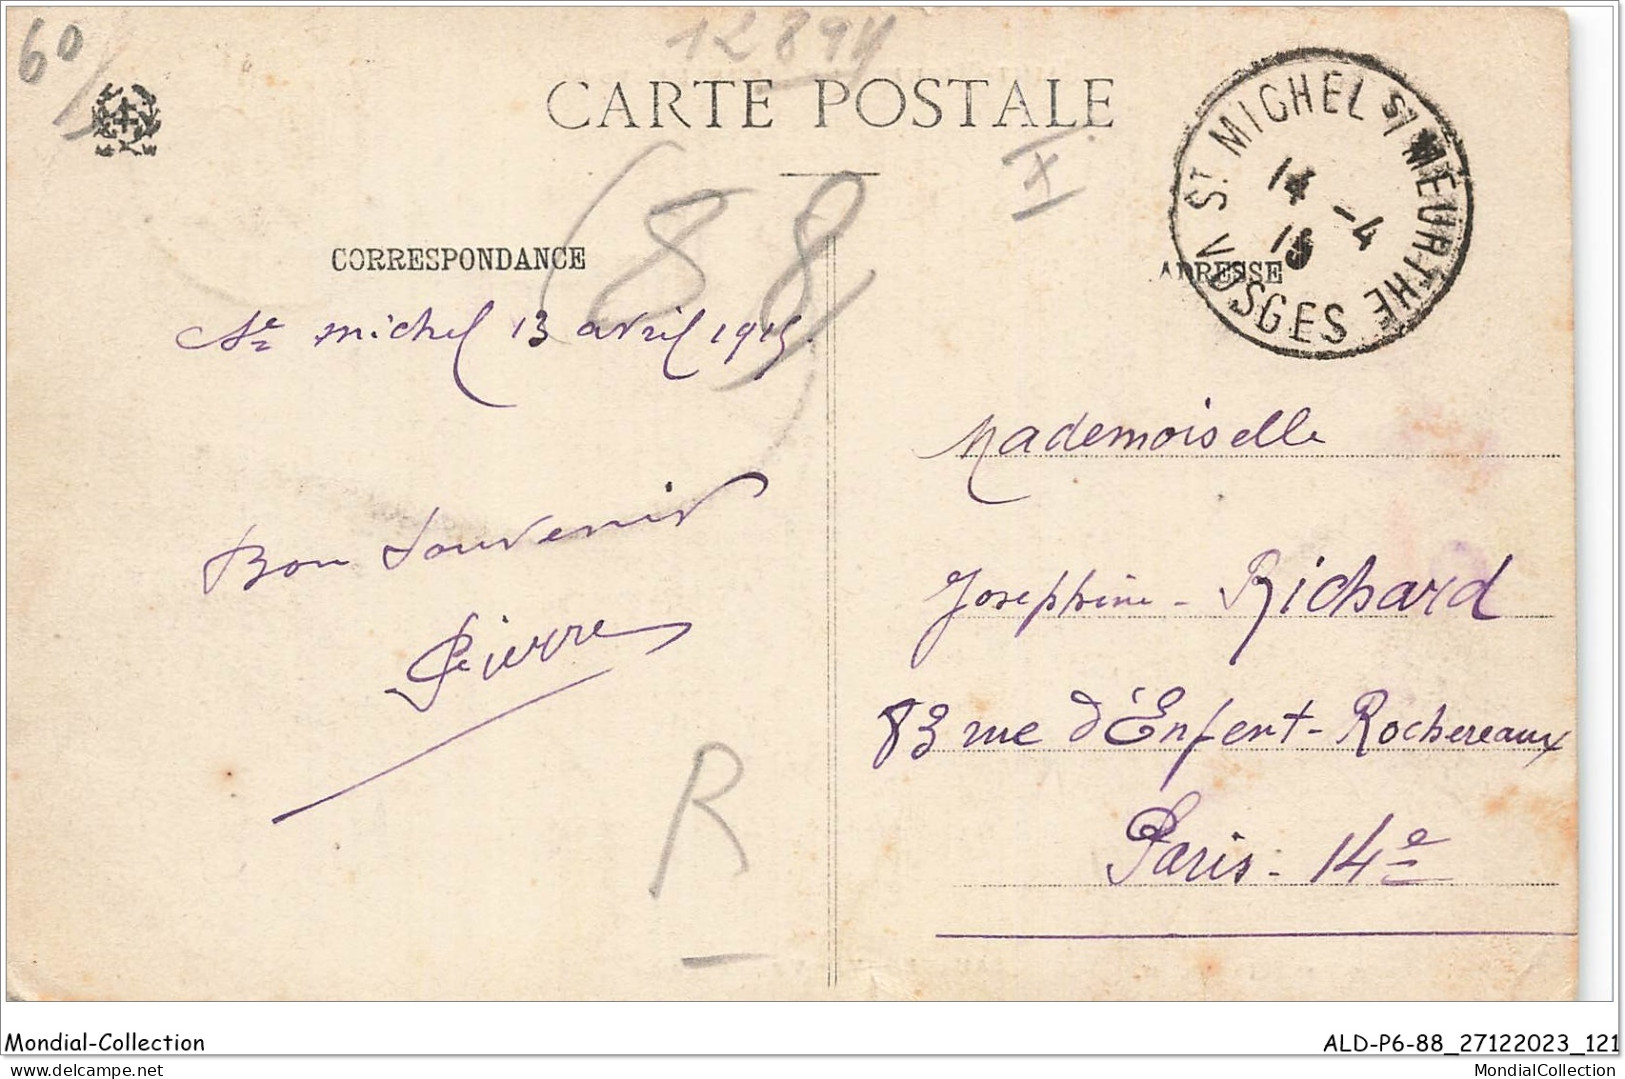 60/
12894
CARTE POSTALE
I
ST MICHEL S/ MEURTHE
14 -4
15
VOSGES
CORRESPONDANCE
(88)
ADRESSE
St michel 13 avril 1915.
Mademoiselle
Bon Souvenir
Josephine - Richard
Pierre
83 rue d'Enfert-Rochereaux
R
Paris - 14e
Mondial-Collection
ALD-P6-88_27122023_121
MondialCollection